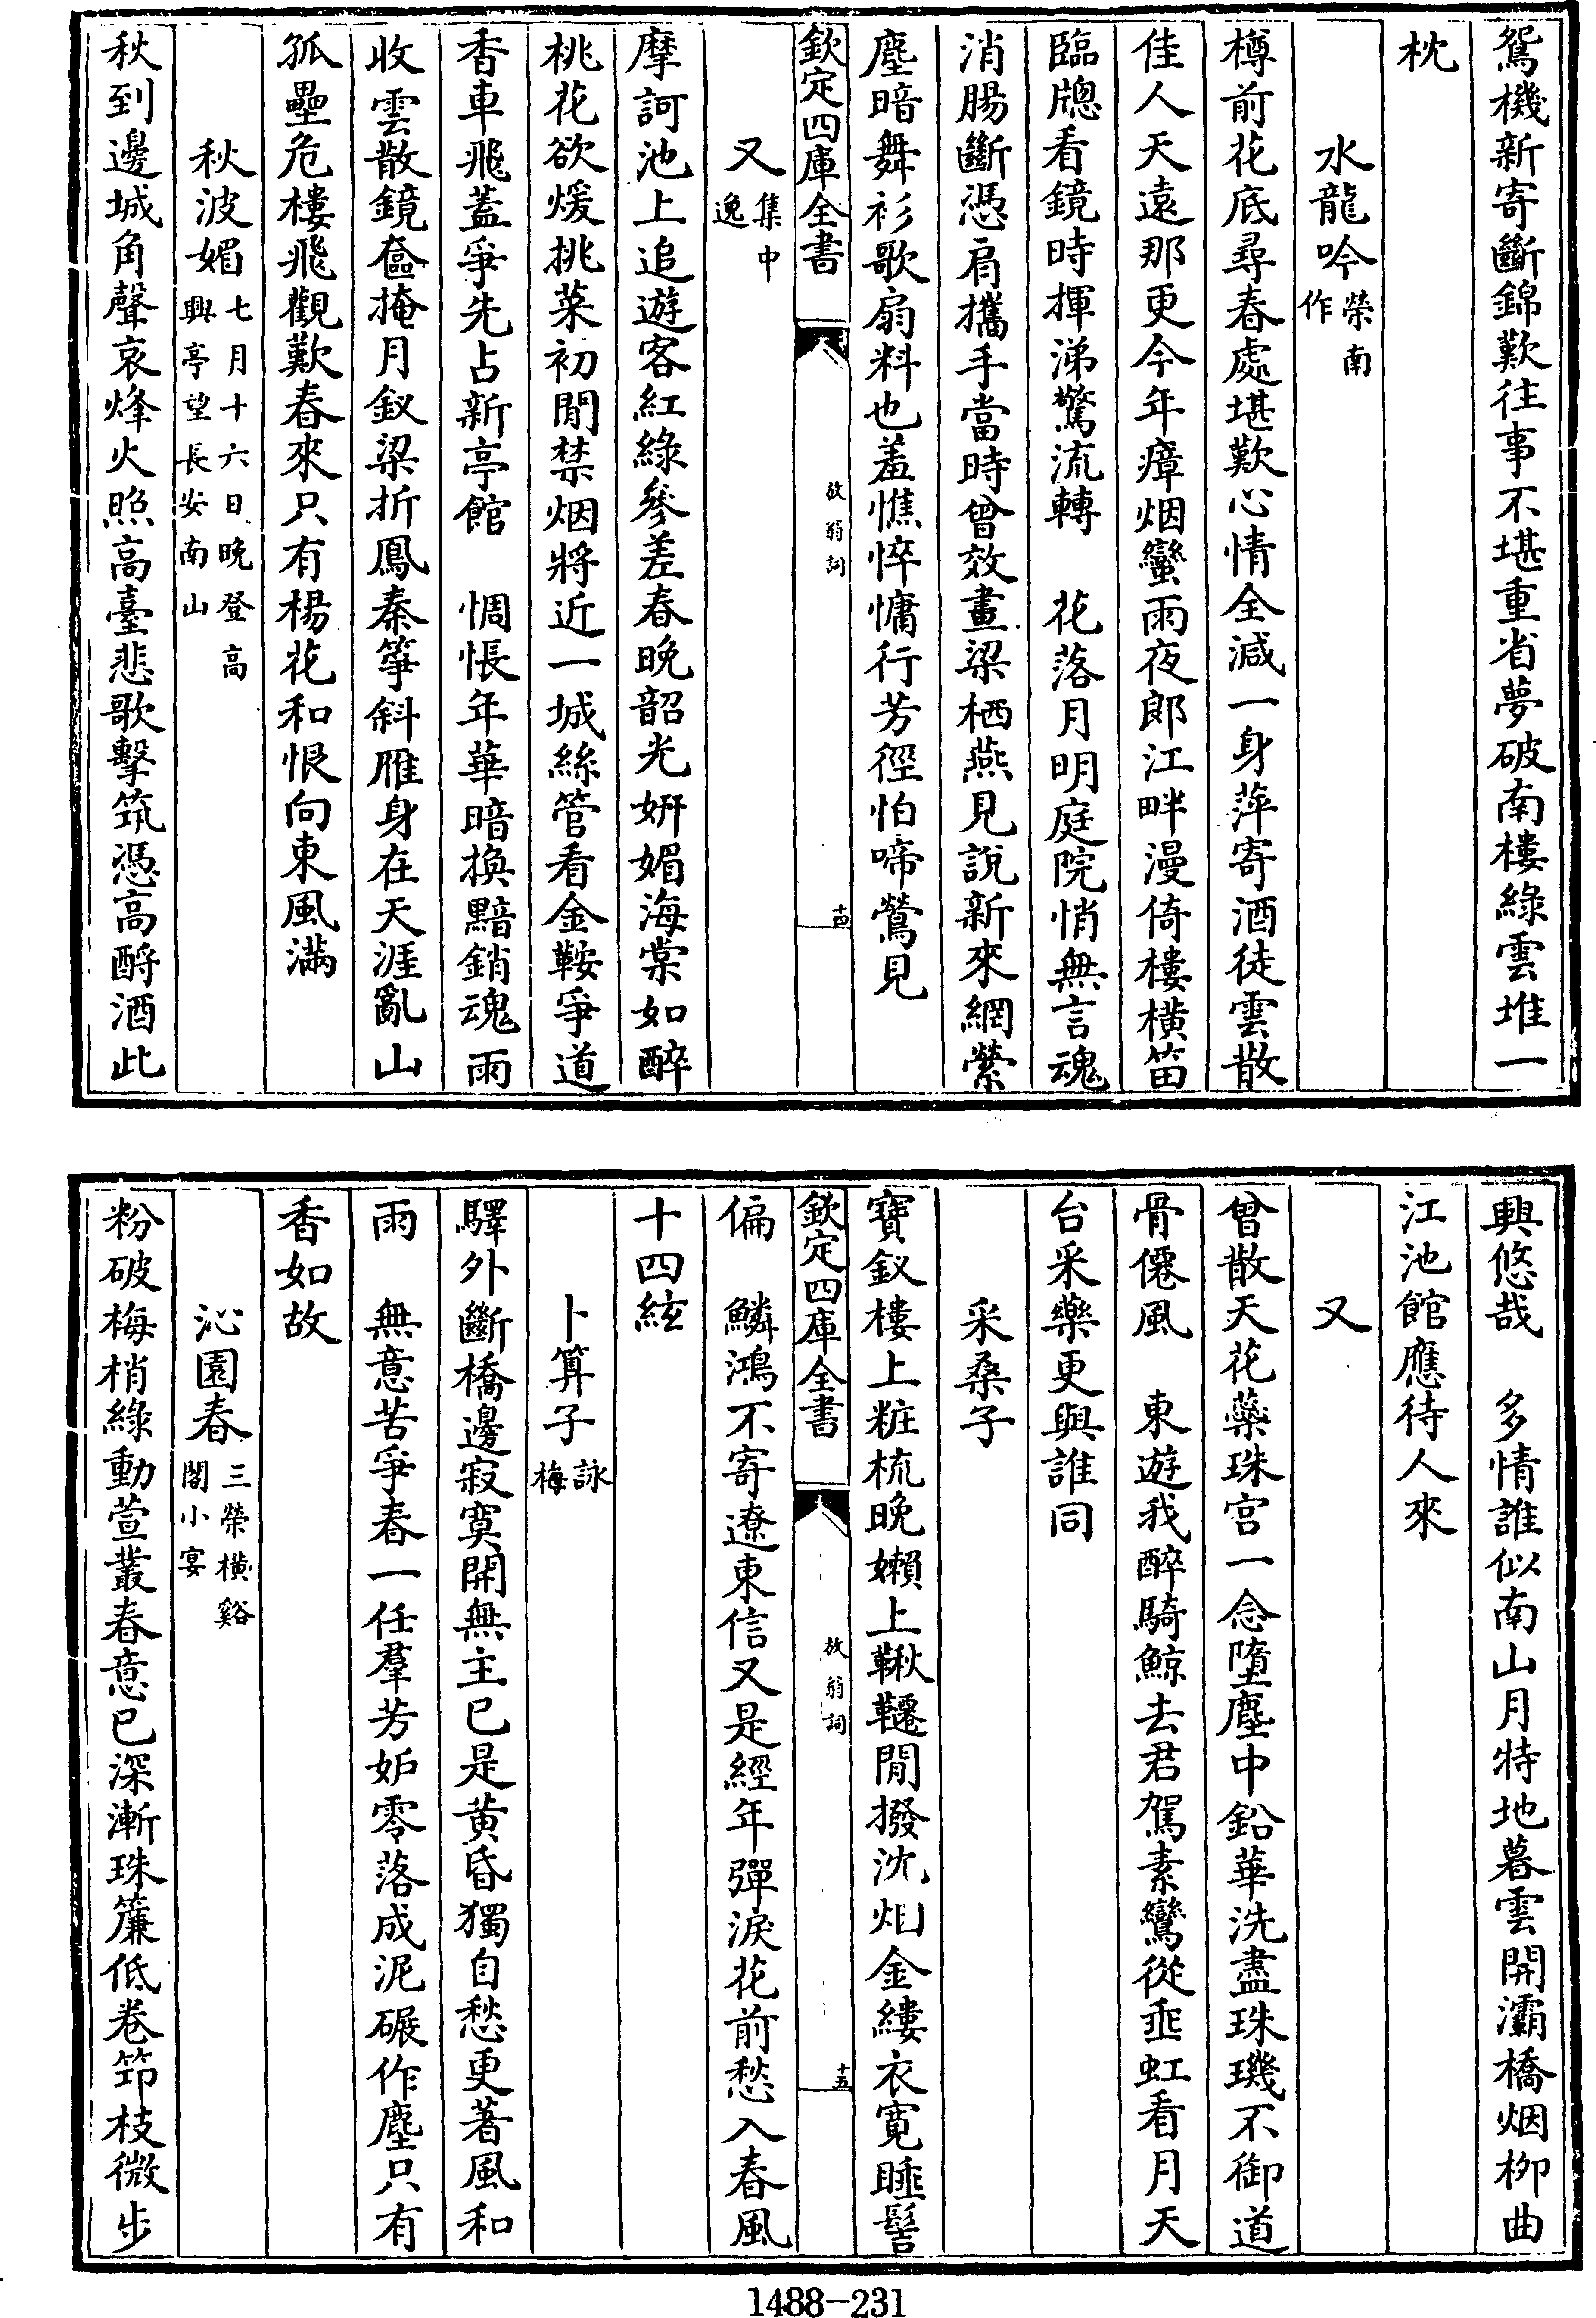 鴛機新寄斷錦歎往事不堪重省夢破南樓綠雲堆一
枕
水龍吟榮南作
樽前花底尋春處堪歎心情全減一身萍寄酒徒雲散
佳人天遠那更今年瘴烟蠻雨夜郎江畔漫倚樓橫笛
臨牕看鏡時揮涕驚流轉　花落月明庭院悄無言魂
消腸斷憑肩攜手當時曾效畫梁栖燕見說新來網縈
塵暗舞衫歌扇料也羞憔悴慵行芳徑怕啼鶯見
欽定四庫全書　放翁詞　十四
又集中逸
摩訶池上追遊客紅綠參差春晚韶光妍媚海棠如醉
桃花欲煖挑菜初閒禁烟將近一城絲管看金鞍爭道
香車飛蓋爭先占新亭館　惆悵年華暗換黯銷魂雨
收雲散鏡奩掩月釵梁折鳳秦箏斜雁身在天涯亂山
孤壘危樓飛觀歎春來只有楊花和恨向東風滿
秋波媚七月十六日晚登高興亭望長安南山
秋到邊城角聲哀烽火照高臺悲歌擊筑憑高酹酒此
興悠哉　多情誰似南山月特地暮雲開灞橋烟柳曲
江池館應待人來
又
曾散天花蘂珠宮一念墮塵中鉛華洗盡珠璣不御道
骨僊風　東遊我醉騎鯨去君駕素鸞從垂虹看月天
台采藥更與誰同
采桑子
寶釵樓上粧梳晚嬾上鞦韆閒撥沈烟金縷衣寬睡髻
欽定四庫全書　放翁詞　十五
偏　鱗鴻不寄遼東信又是經年彈淚花前愁入春風
十四絃
卜算子詠梅
驛外斷橋邊寂寞開無主已是黃昏獨自愁更著風和
雨　無意苦爭春一任羣芳妒零落成泥碾作塵只有
香如故
沁園春三榮橫谿閣小宴
粉破梅梢綠動萱叢春意已深漸珠簾低卷筇枝微步
1488-231